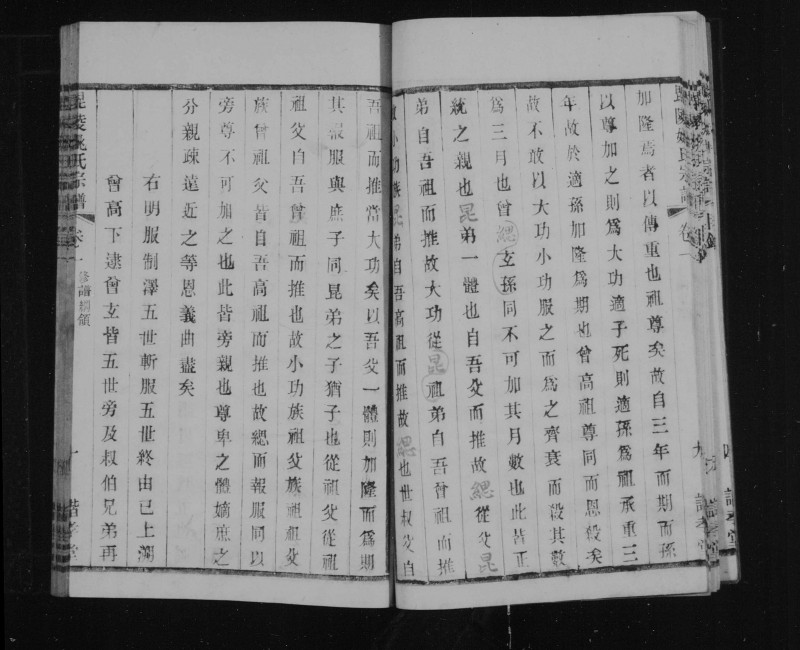 加隆焉者以傳重也祖尊矣故自三年而期而孫
以尊加之則爲大功適子死則適孫爲祖承重三
年故於適孫加隆爲期也曾高祖尊同而恩殺矣
故不敢以大功小功服之而爲之齊衰而殺其數
爲三月也曾緦玄孫同不可加其月數也此皆正
統之親也昆弟一體也自吾父而推故緦從父昆
弟自吾祖而推故大功從昆祖弟自吾曾祖而推
故小功族昆弟自吾高祖而推故緦也世叔父自
吾祖而推當大功矣以吾父一體則加隆而爲期
其報服與庶子同昆弟之子猶子也從祖父從祖
祖父自吾曾祖而推也故小功族祖父族祖祖父
族曾祖父皆自吾高祖而推也故緦而報服同以
旁尊不可加之也此皆旁親也尊卑之體嫡庶之
分親疎遠近之等恩義曲盡矣
右明服制澤五世斬服五世終由已上溯
曾高下逮曾玄皆五世旁及叔伯兄弟再
毘陵姚氏宗譜 卷一 修譜綱領 十